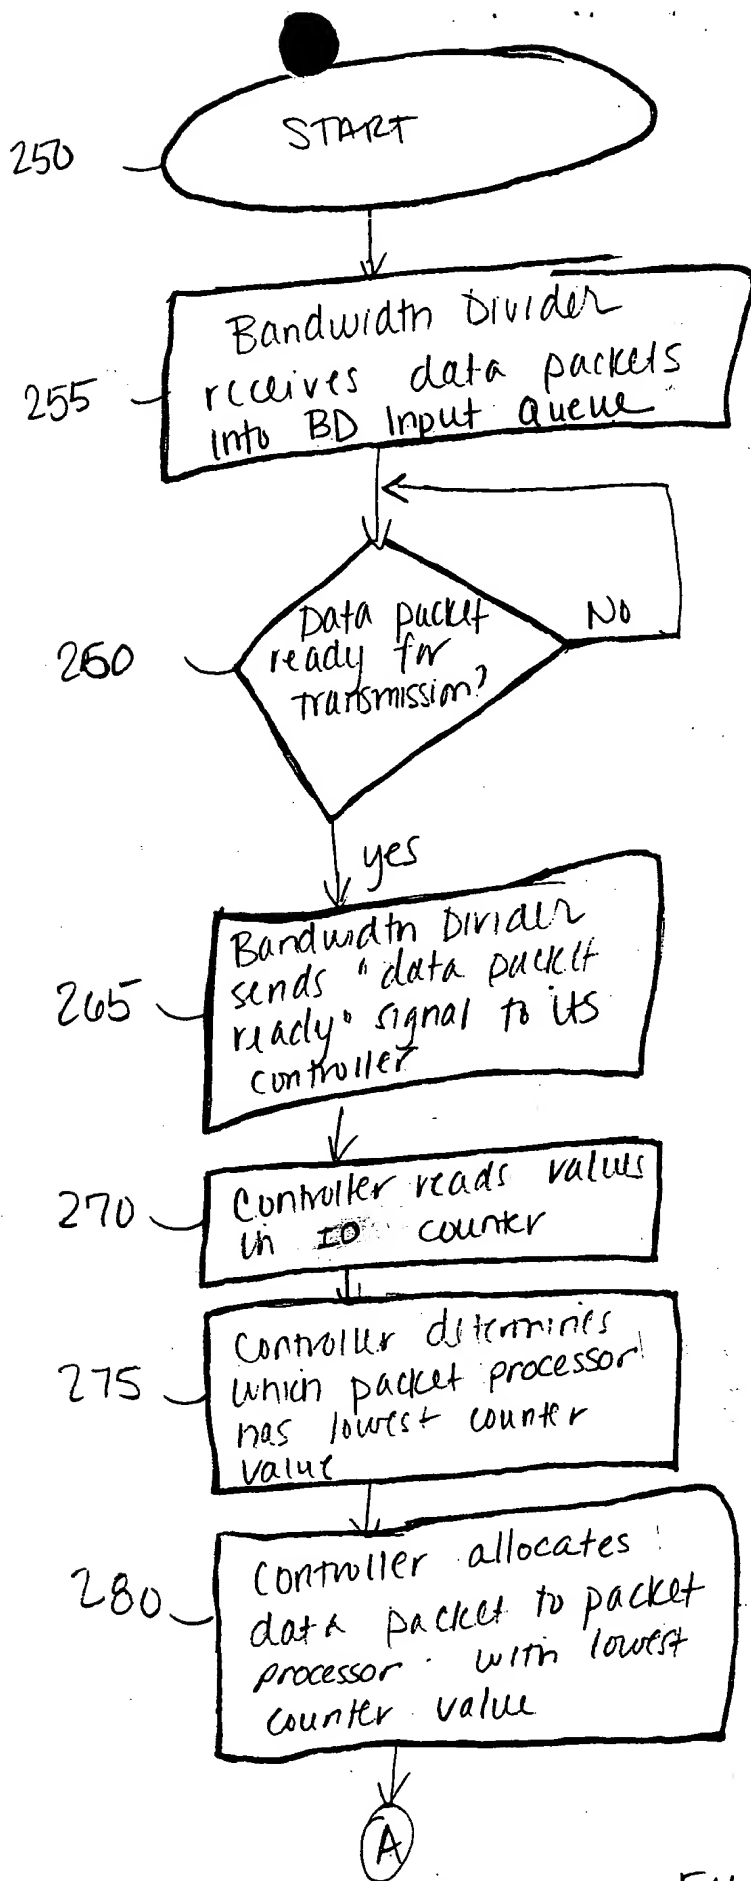 START
250
Bandwidth Divider
receives data packets
into BD Input Queue
255
Data packet
ready for
transmission?
No
260
yes
Bandwidth Divider
sends "data packet
ready" signal to its
controller
265
Controller reads values
in IO counter
270
Controller determines
which packet processor
has lowest counter
value
275
Controller allocates
data packet to packet
processor with lowest
counter value
280
A